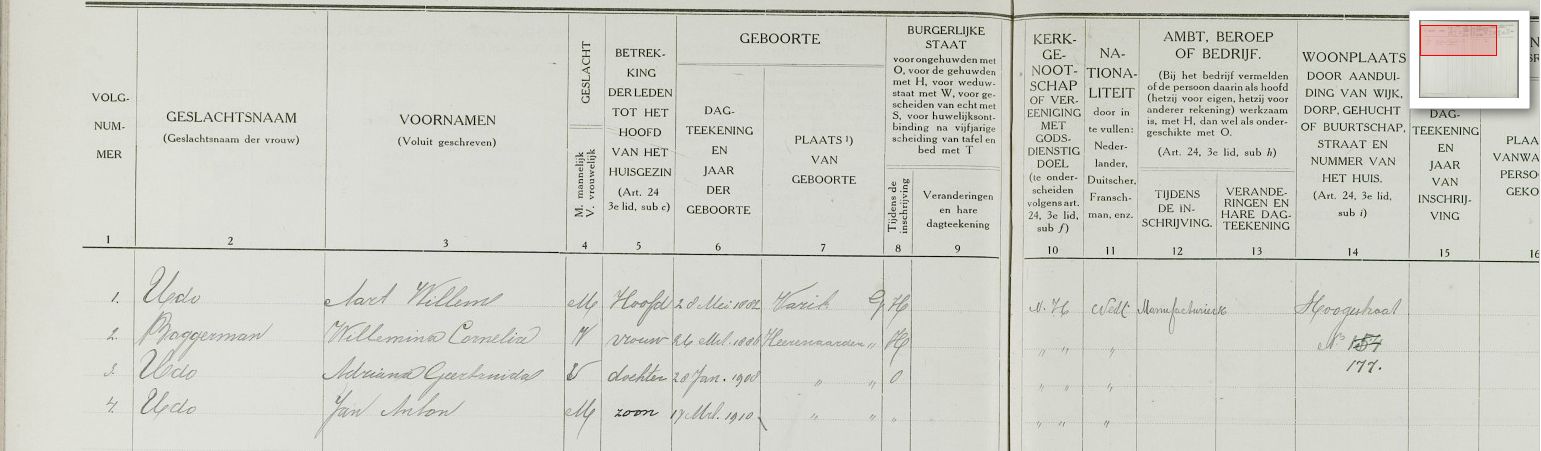 VOLG-
NUM-
MER
1
GESLACHTSNAAM
(Geslachtsnaam der vrouw)
2
VOORNAMEN
(Voluit geschreven)
3
GESLACHT
M. mannelijk
V. vrouwelijk
4
BETREK-
KING
DER LEDEN
TOT HET
HOOFD
VAN HET
HUISGEZIN
(Art. 24
3e lid, sub c)
5
GEBOORTE
DAG-
TEEKENING
EN
JAAR
DER
GEBOORTE
6
PLAATS ¹)
VAN
GEBOORTE
7
BURGERLIJKE
STAAT
voor ongehuwden met
O, voor de gehuwden
met H, voor weduw-
staat met W, voor ge-
scheiden van echt met
S, voor huwelijksont-
binding na vijfjarige
scheiding van tafel en
bed met T
Tijdens de
inschrijving
8
Veranderingen
en hare
dagteekening
9
KERK-
GE-
NOOT-
SCHAP
OF VER-
EENIGING
MET
GODS-
DIENSTIG
DOEL
(te onder-
scheiden
volgens art.
24, 3e lid,
sub f)
10
NA-
TIONA-
LITEIT
door in
te vullen:
Neder-
lander,
Duitscher,
Fransch-
man, enz.
11
AMBT, BEROEP
OF BEDRIJF.
(Bij het bedrijf vermelden
of de persoon daarin als hoofd
(hetzij voor eigen, hetzij voor
anderer rekening) werkzaam
is, met H, dan wel als onder-
geschikte met O.
(Art. 24, 3e lid, sub h)
TIJDENS
DE IN-
SCHRIJVING.
12
VERANDE-
RINGEN EN
HARE DAG-
TEEKENING
13
WOONPLAATS
DOOR AANDUI-
DING VAN WIJK,
DORP, GEHUCHT
OF BUURTSCHAP,
STRAAT EN
NUMMER VAN
HET HUIS.
(Art. 24, 3e lid,
sub i)
14
DAG-
TEEKENING
EN
JAAR
VAN
INSCHRIJ-
VING
15
PLAA
VANWA
PERSO
GEKO
16
1. Udo Aart Willem M Hoofd 28 Mei 1882 Varik G H N. H Nedl. Manufacturier H Hoogstraat
2. Baggerman Willemina Cornelia V vrouw 26 Mrt. 1886 Heerewaarden " H " " " No 157
177.
3. Udo Adriana Geertruida V dochter 28 Jan. 1908 " " O " " "
4. Udo Jan Anton M zoon 17 Mrt. 1910 " " " " " "